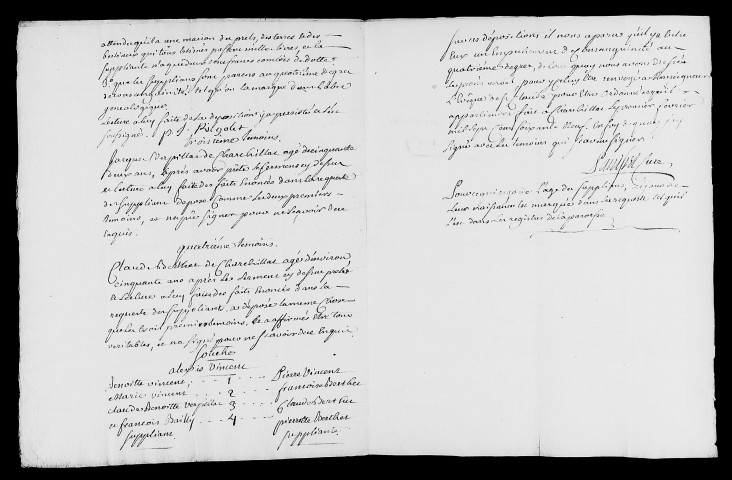 attendu qu'il a une maison du prels, des terres et des
bestiaux qui tous estimés passent mille livres, et la
suppliante n'a que deux cens francs comtées de dotte
et que les suppliants sont parens au quatrième degré
de consanguinité, tel qu'on l'a marqué dans l'arbre
genealogique
Lecture a luy faite de sa deposition y a persisté et s'est
soussigné.
troisieme temoins
Jacques Verpillat de Charchillat agé de cinquante
ans, après avoir preté le serment cy dessus
et lecture a luy faite des faits enoncés dans la requete
des suppliants depose comme les deux premiers
temoins, et n'a sçeu signer pour ne sçavoir de ce
requis.
quatriéme temoins.
Claude Berthet de Charchillat agé d'environ
cinquante ans après le serment cy dessus preté
et lecture a luy faite des faits enoncés dans la
requeste des suppliants, a deposé la meme chose
que les trois premiers temoins, et a affirmés être tous
veritables, et n'a signé pour ne sçavoir de ce requis
Souche
alexsio Vincent
Benoitte vincent, 1 Pierre Vincent
Marie vincent 2 francoise Berthet
claudes Benoitte Verpillat 3 Claude Berthet
et francois Bailly 4 pierrette Berthet
suppliant. suppliante.
sur ces dépositions il nous a parus qu'il y a entre
eux un empechement de consanguinité au
quatrième degré, de tous quoy nous avons dressé
le procès verbal pour y celuy être renvoyé a Monseigneur
L'Evêque de St Claude pour être ordonné ce qu'il
appartiendra fait a Charchillat le premier fevrier
mil sept cent soixante neuf. En foy de quoy j'ay
signé avec les temoins qui sçavent signer
curé.
Pour ce qui regarde l'age des suppliants, le jour de
leur naissance est marqués dans la requete tel qu'il
l'est dans les registres de la paroisse